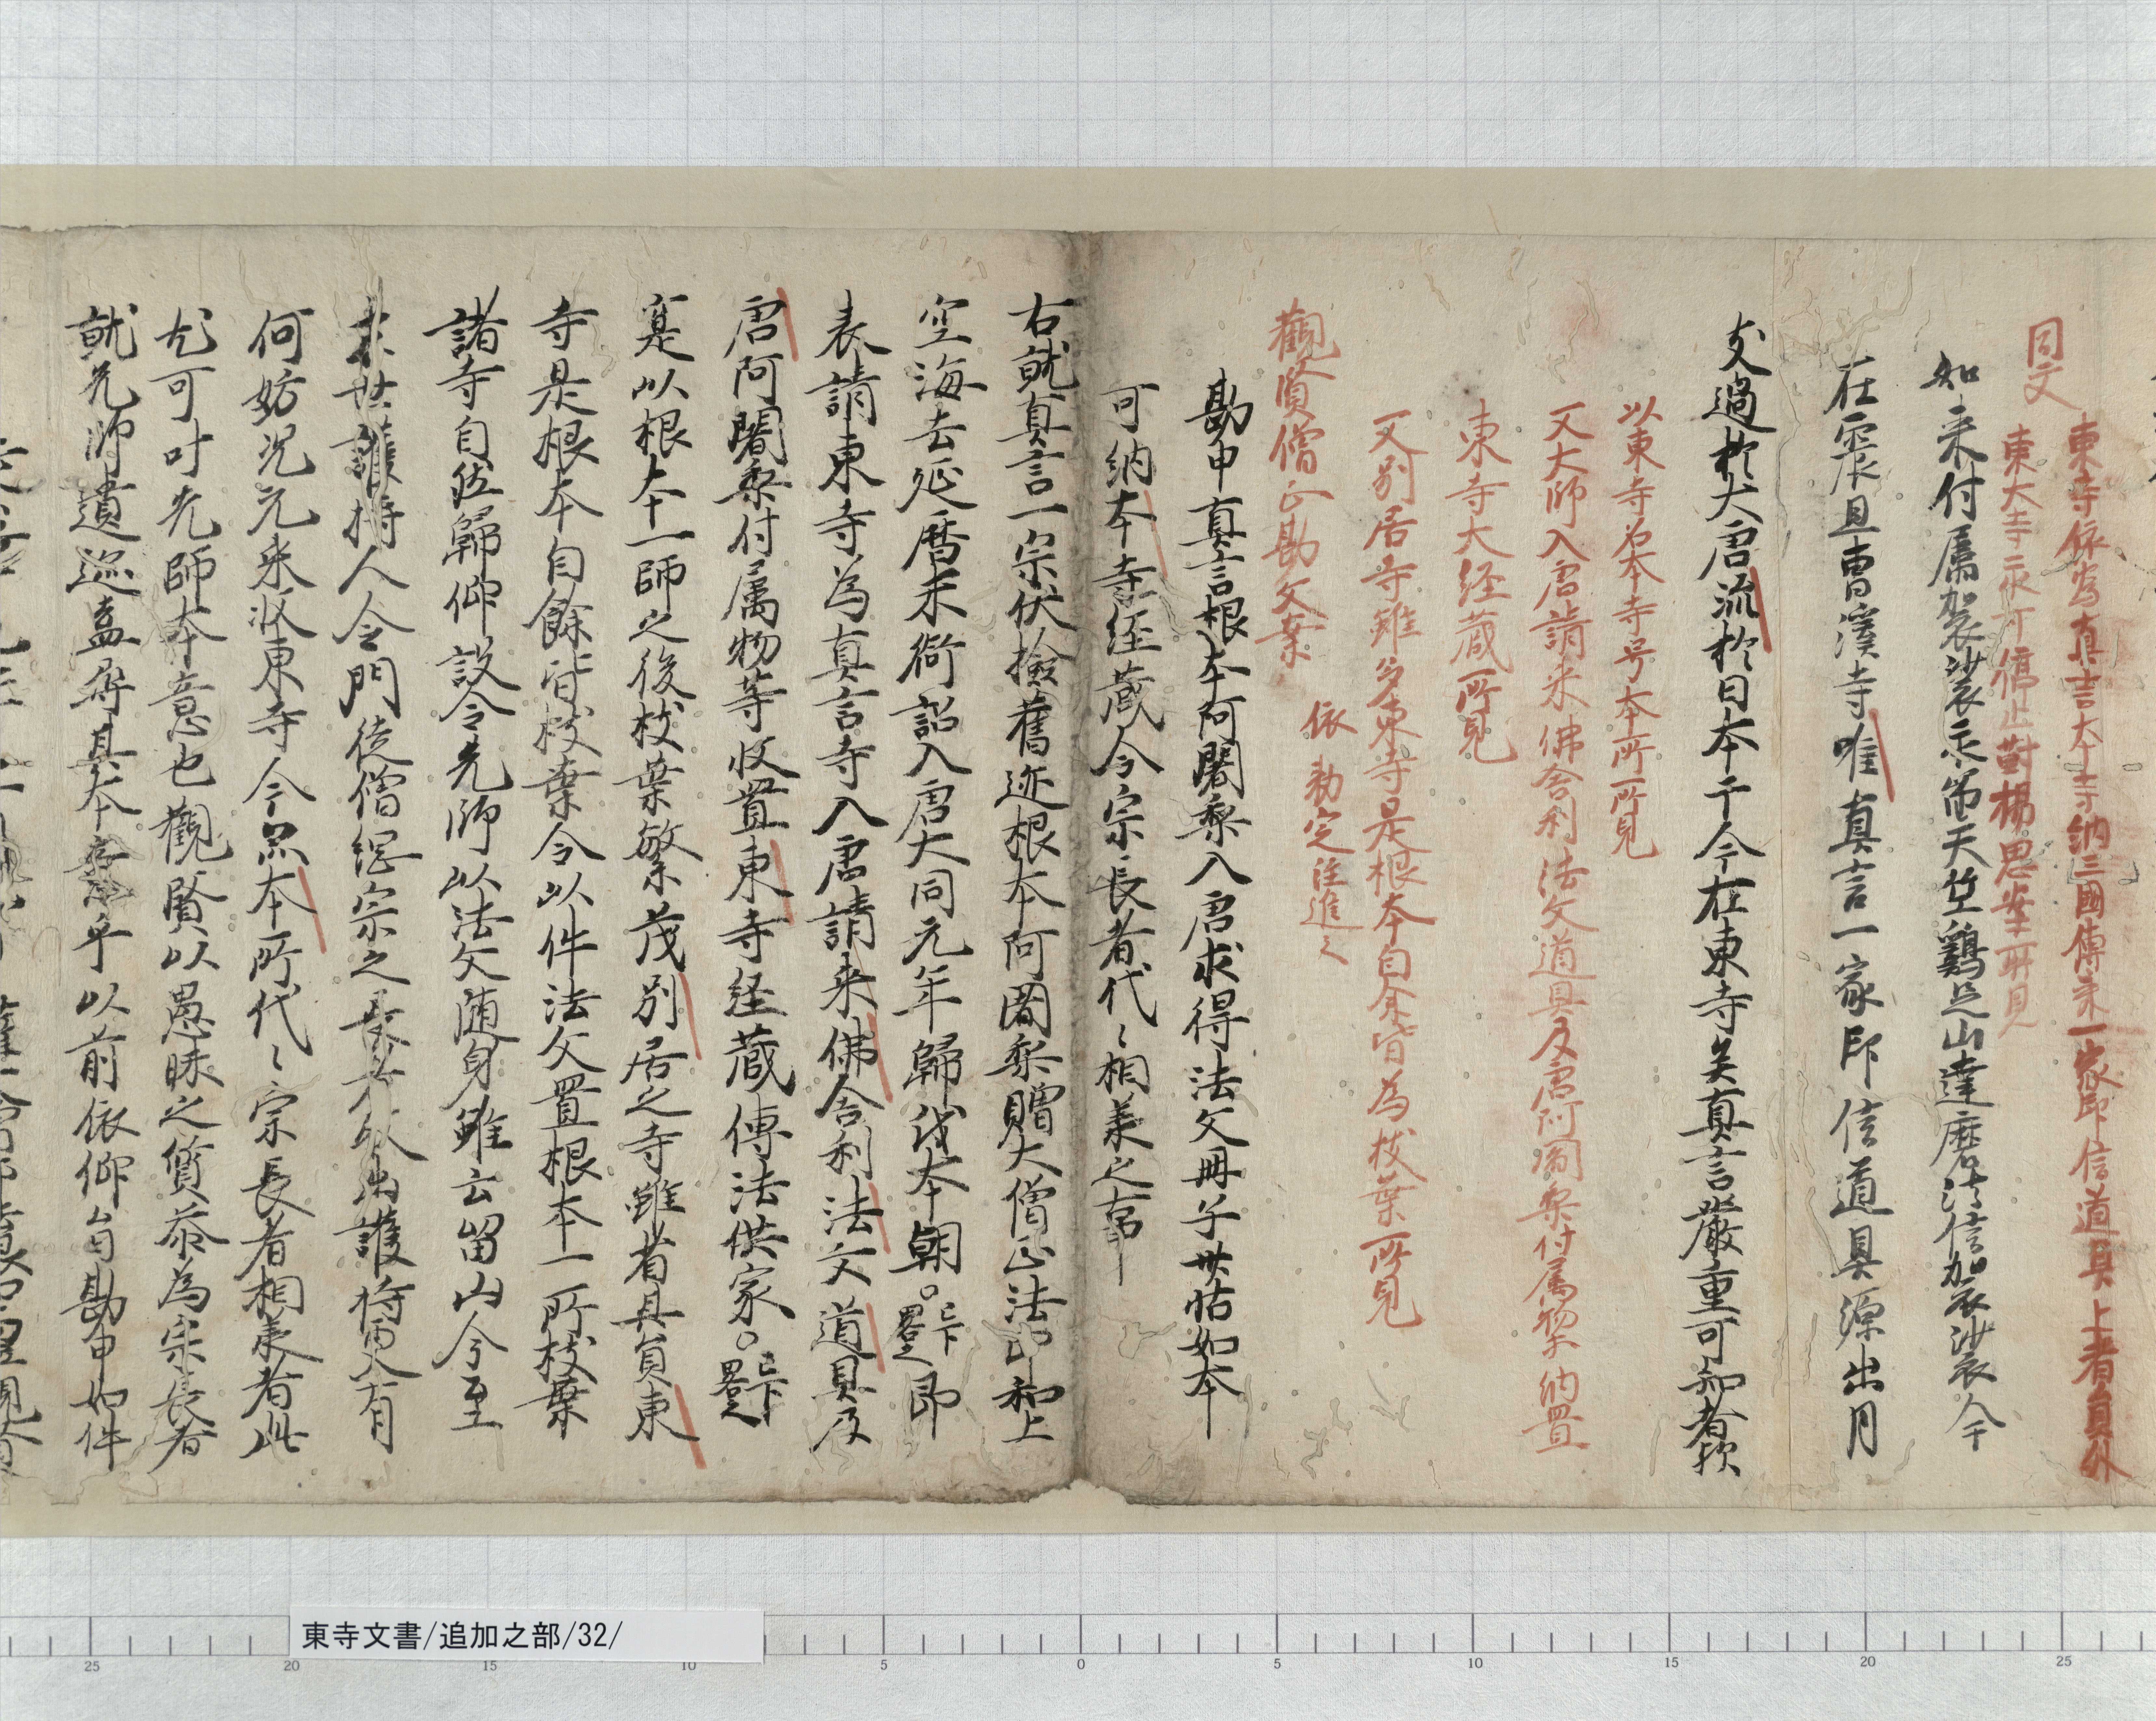 同文
東寺依為真言大寺納三國傳来一家印信道具上者自外
東大寺永可停止對楊思案所見
如来付属袈裟示留天竺鷄足山達磨法信袈裟今
在震旦曹溪寺唯真言一家印信道具源出月
支過於大唐流於日本于今在東寺矣真言嚴重可知者歟
以東寺為本寺号本所所見
又大師入唐請来佛舎利法文道具及唐阿闍梨付属物等納置
東寺大経蔵所見
又別居寺雖多東寺是根本自余皆為枝葉所見
觀賢僧正勘文案 依 勅定注進之
勘申真言根本阿闍梨入唐求得法文冊子卅帖如本
可納本寺経蔵令宗長者代〻相承之事
右就真言一宗伏撿舊迹根本阿闍梨贈大僧正法印和上
空海去延暦末銜詔入唐大同元年歸我本朝 已下畧之 即
表請東寺為真言寺入唐請来佛舎利法文道具及
唐阿闍梨付属物等收置東寺経蔵傳法供家 已下畧之
寔以根本一師之後枝葉繁茂別居之寺雖有其員東
寺是根本自餘皆枝葉今以件法文置根本一所枝葉
諸寺自依歸仰設令先師以法文随身雖云留山今至
末世護持人令門徒僧綱宗之長者取出護持更有
何妨况元来收東寺今為本所代〻宗長者相承者此
尤可叶先師本意也觀賢以愚昧之質忝為宗長者
就先師遺迹盍尋其本意乎以前依仰旨勘申如件